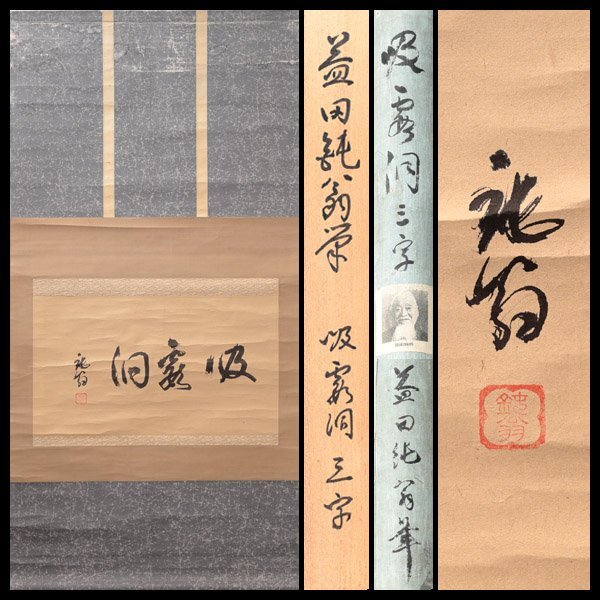 吸霞洞
鈍翁
益田鈍翁筆 吸霞洞三字
吸霞洞三字
益田鈍翁筆
鈍翁
鈍翁